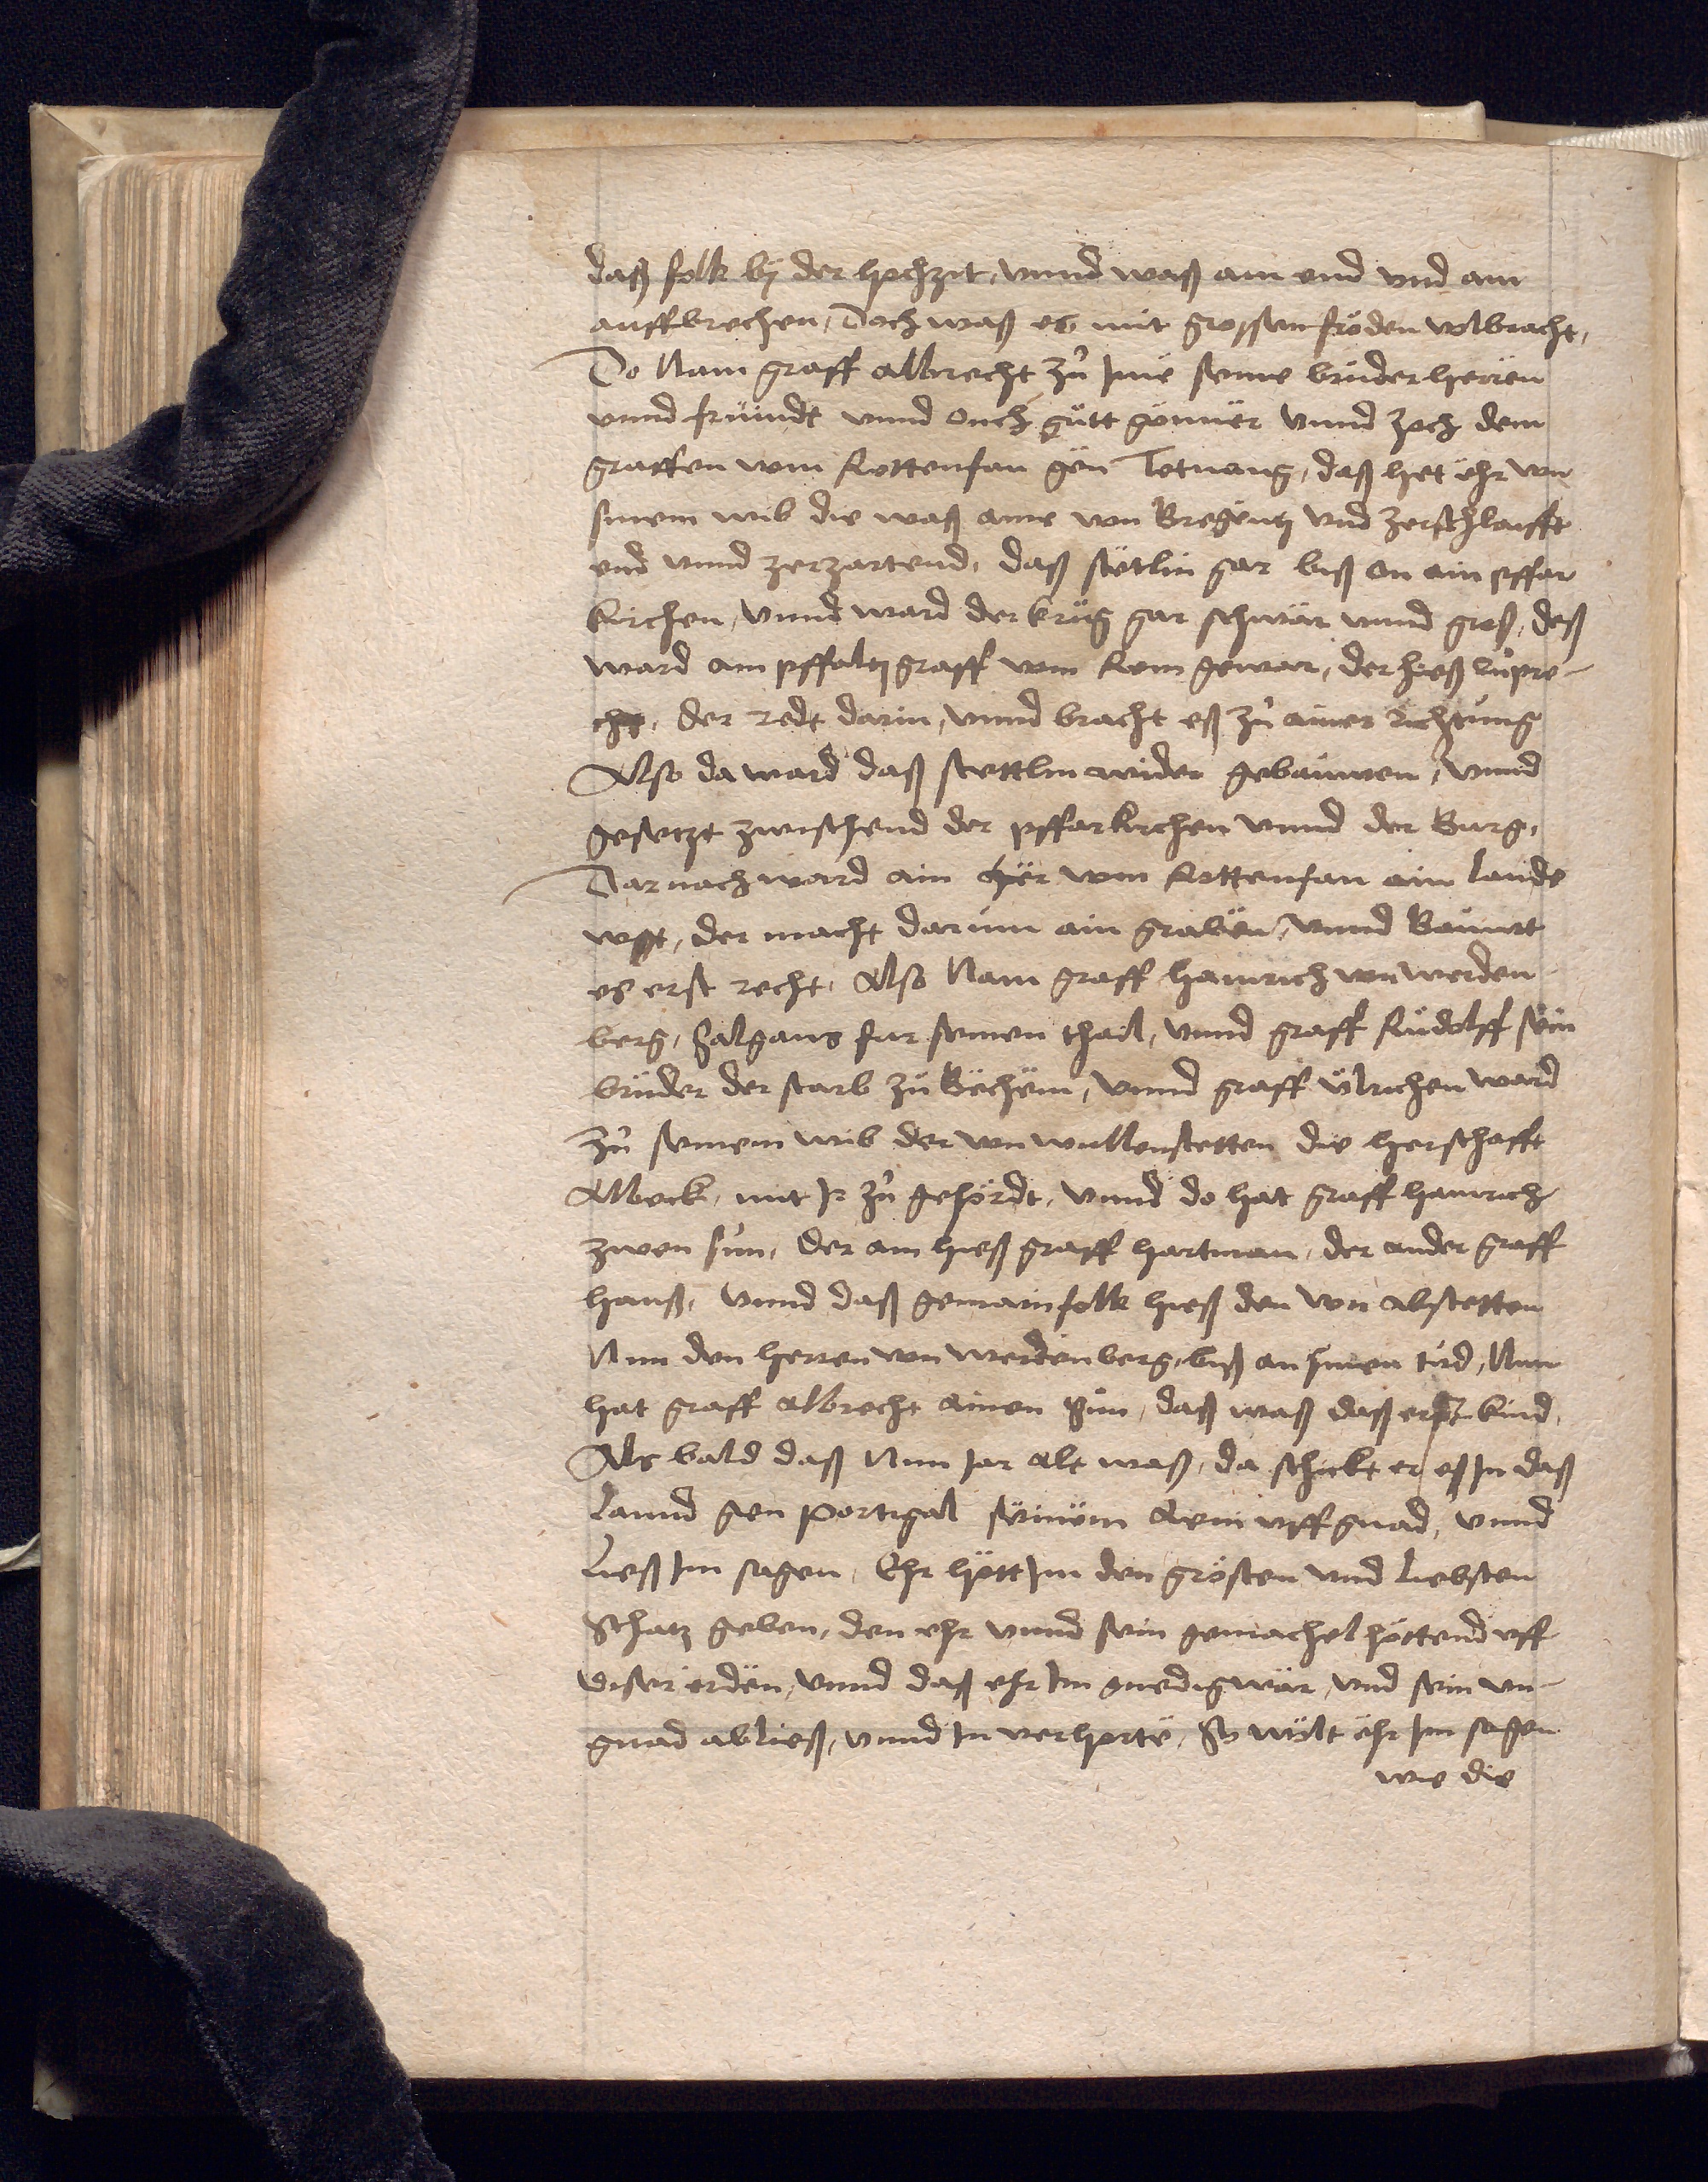 daß folk bÿ der hochzit, vnnd waß am end vnd am
auffbrechen, Doch waß es mit grossen fröden volbracht,
Do Nam graff albrecht zů Ime seine brüder herren
vnnd fründt vnnd ouch gůtt gönner vnnd zoch dem
graffen von Rottenfan gen Tetnang, daß het ehr von
sinem wib die waß aine von Bregentz vnd zerschlaifft
end vnnd zerzartend, daß stëtlin gar biß on ain pffar
kirchen, vnnd ward der krieg gar schwär vnnd groß, deß
ward am pffaltzgraff vom Rein gewar, der hieß lůpre-
cht, der redt darin, vnnd bracht eß zů ainer richtung
Also da ward daß stettlin wider gebauwen, vnnd
gesetzt zwischend der pffarkirchen vnnd der Burg,
Darnach ward ain her von Rottenfan ain lands
vogt, der macht darum ain graben, vnnd Bauwt
es erst recht. Also Nam graff hainrich von werden
berg, Salgans fur seinen thail, vnnd graff Růdolff sein
brůder der starb zů Bëhëm, vnnd graff ůlrichen ward
zů seinem wib der von wullenstetten die herschafft
Albeck, mit Ir zů gehördt, vnnd do hat graff hainrich
zwen sün, der ain hieß graff hartman, der ander graff
hanß, vnnd daß gemain folk hieß den von alstetten
Nun den herren von werdenberg, biß an sinen tod, Nun
hat graff albrecht ainen Sun, daß waß daß erst kind,
Als bald daß Nun Jar alt waß, da schickt er eß In daß
Lannd gen portigal seinem Aeni vff gnad, vnnd
Ließ Im sagen, Ehr hett Im den grösten vnd Liebsten
Schatz geben, den ehr vnnd sein gemachel hottend vff
diser erden, vnnd daß ehr Im gnedig wär, vnd sein vn-
gnad abließ, vnnd In verhorte, So wölt ehr Im sagen
wie die